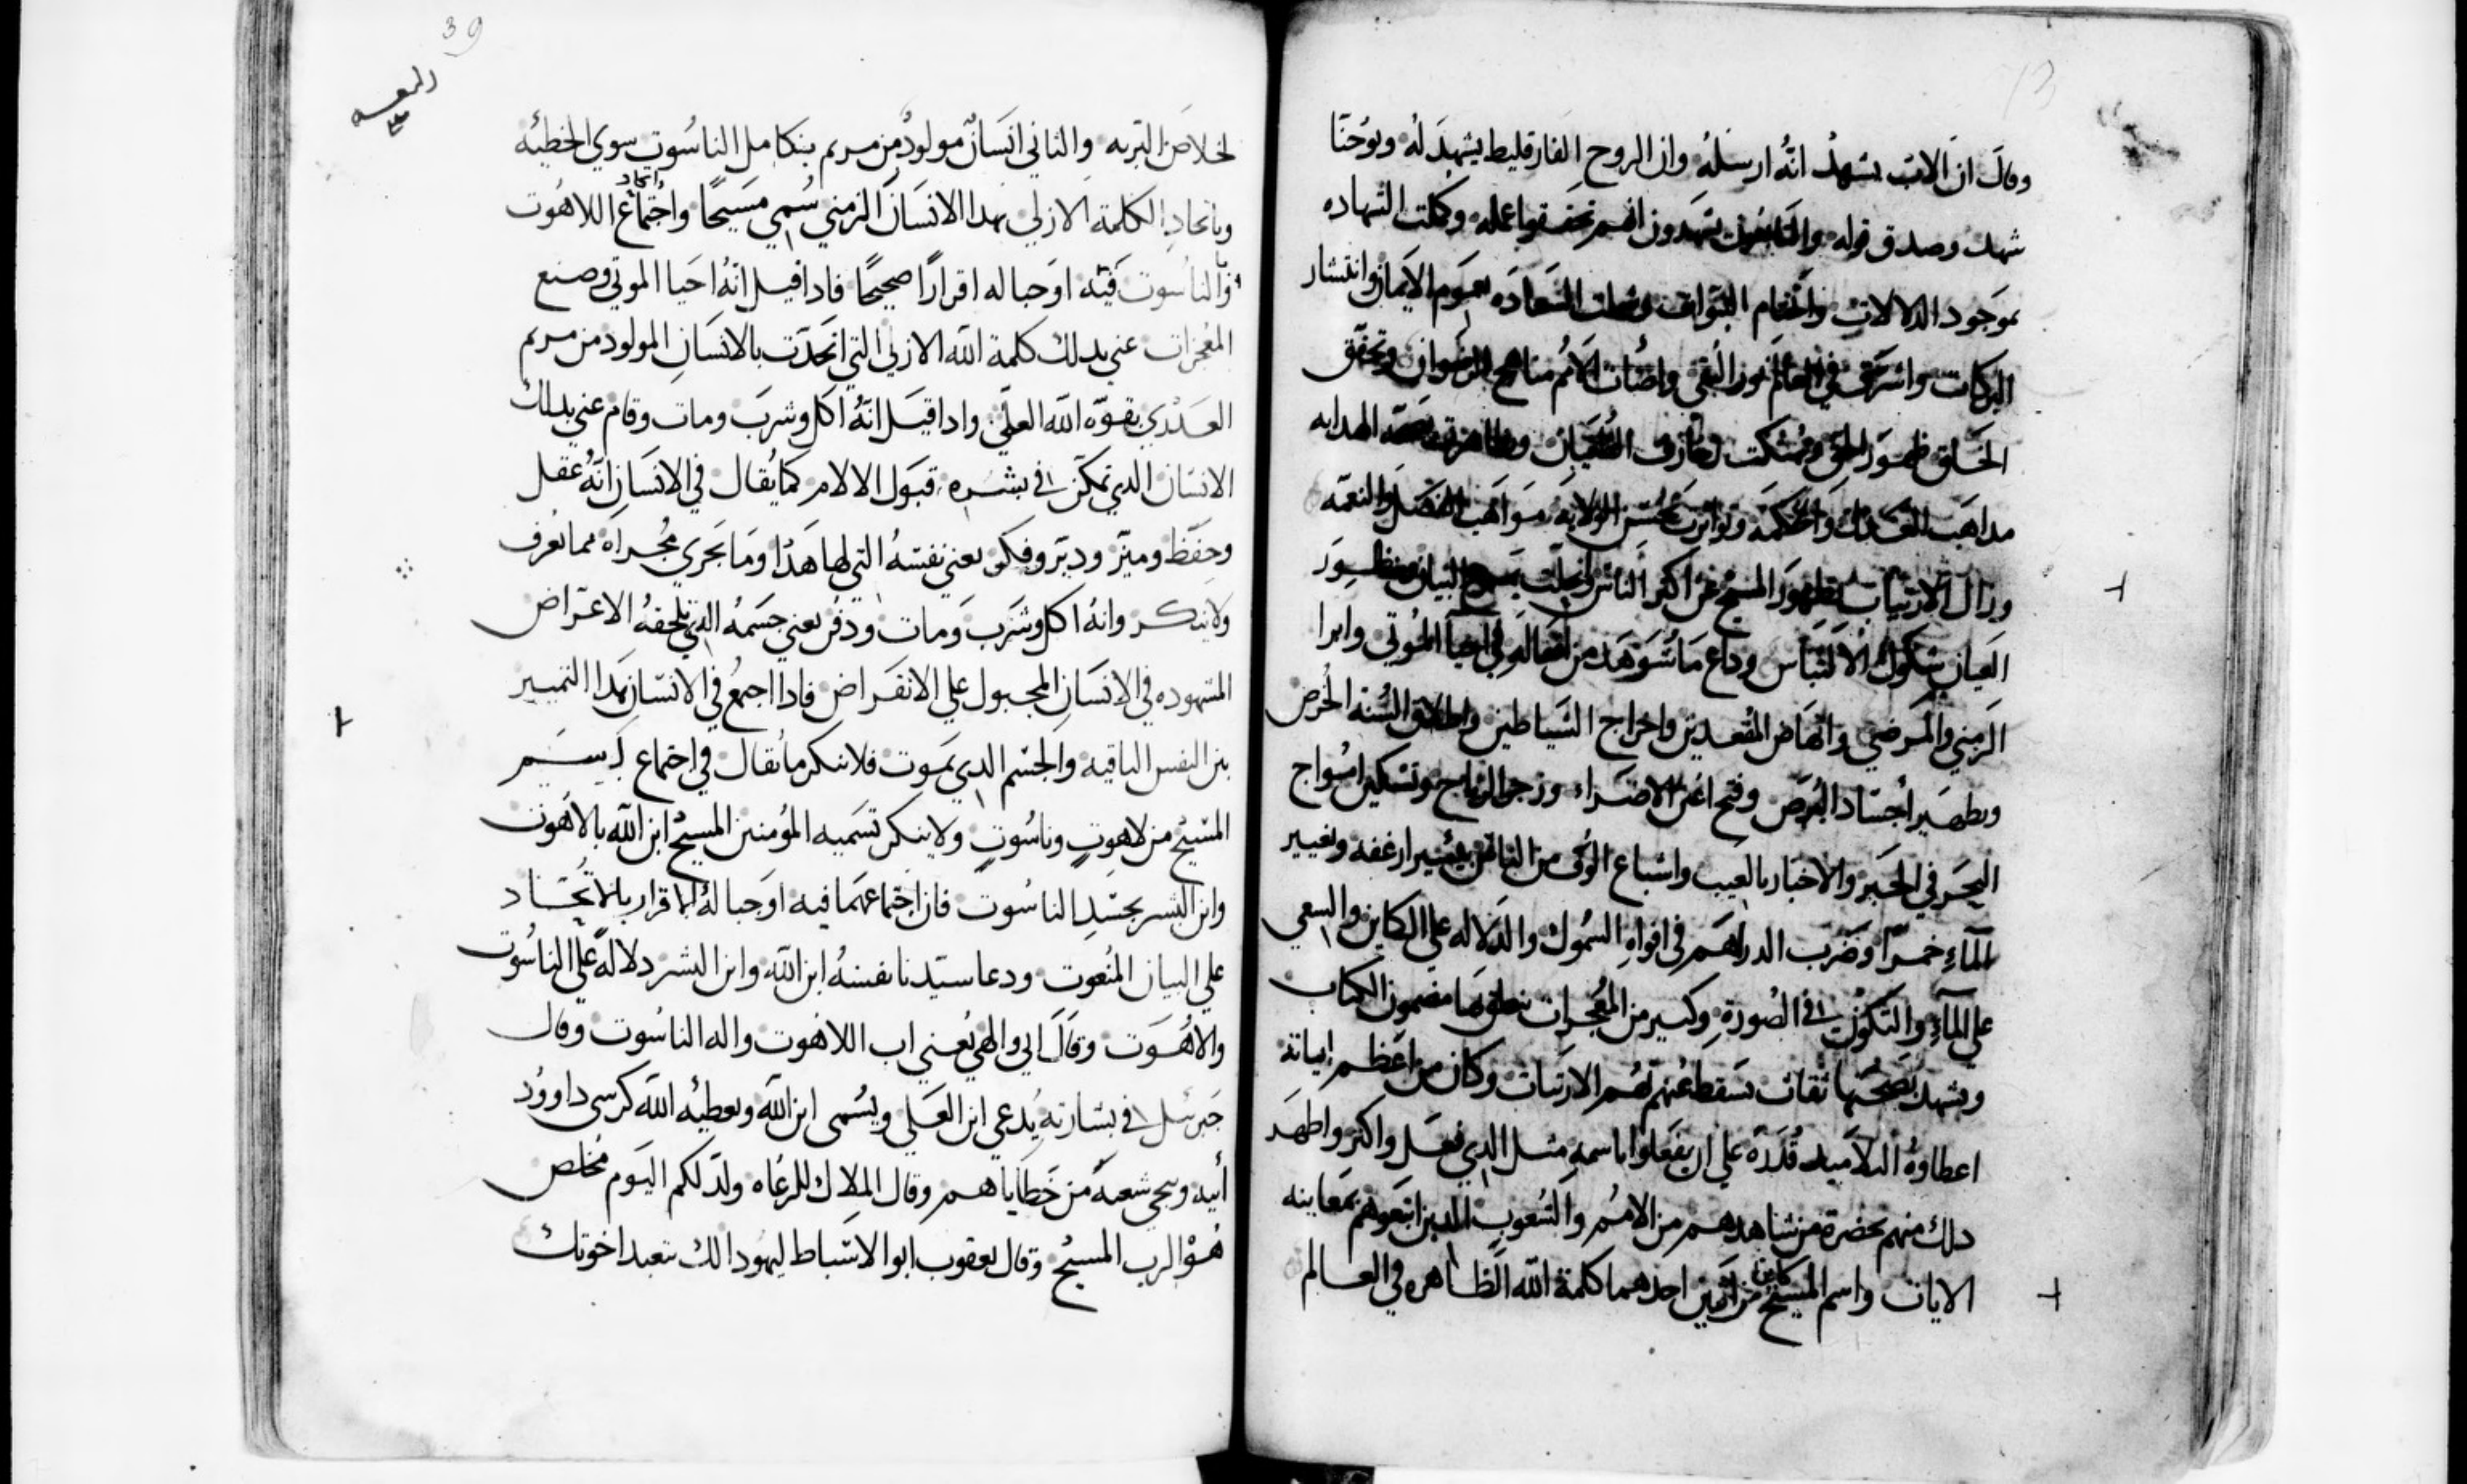 وقال ان الاب يشهد انه ارسله وان الروح الفارقليط يشهد له ويوحنا
شهد وصدق قوله والتابعين يشهدون انهم تحققوا عمله وكملت الشهاده
بموجود الدلالات وانتظام السعاده بعموم الايمان وانتشار
البركات واشرق في العالم نور التقى واضات الامم مناهج الرضوان وتحقق
الخلق ظهور الحق وهتكت الطغيان الهدايه
مداهب العدل والحكمه وتواترت بحسن الولايه مواهب الفضل والنعمه
وزال الارتياب بظهور المسيح عن اكثر الناس وانجلت البيان
العيان شكوك الالتباس وداع ما شوهد من افعاله في احيا الموتى وابرا
الزمنى والمرضي وانهاض المقعدين واخراج الشياطين واطلاق السنه الخرص
وتطهير اجساد البرص وفتح اعين الاضراء وزجر الرياح وتسكين امواج
البحر في الحبر والاخبار بالغيب واشباع الوف من الناس بيسير ارغفه وتغيير
المآء خمرًا وضرب الدراهم في افواه السموك والدلاله على الكاين والسعي
على المآء والتكون في الصورة وكتير من المعجزات نطق بها مضمون الكتاب
وشهد بصحتها ثقات تسقط عنهم تهم الارتياب وكان من اعظم اياته
اعطاوه التلاميد قدرة علي ان يفعلوا باسمه مثل الدي فعل واكتر واظهر
دلك منهم بحضرة من شاهدهم من الامم والشعوب الدين اتبعوهم بمعاينه
الايات واسم المسيح كاين من اثنين احدهما كلمة الله الظاهره في العالم
39
لخلاص البريه والثاني انسان مولود من مريم بتكامل الناسوت سوي الخطيئه
وباتحاد الكلمة الازلي بهدا الانسان الزمني سُمي مسيحًا واجتماع اتحاد اللاهوت
والناسوت فيه اوجبا له اقرارًا صحيحًا فادا قيل انه احيا الموتي وصنع
المعجزات عني بدلك كلمة الله الازلي التي اتحدت بالانسان المولود من مريم
العدري بقوّه الله العليّ وادا قيل انهُ اكل وشرب ومات وقام عني بدلك
الانسان الدي تمكن في بشره قبول الالام كما يُقال في الانسان انهُ عقل
وحفظ وميّز ودبّر وفكر يعني نفسهُ التي لها هدا وما يجري مجراه مما يُعرف
ولا ينكر وانهُ اكل وشرب ومات ودفن يعني جسمهُ الدي تلحقهُ الاعراض
المشهوده في الانسان المجبول علي الانقراض فادا اجمع في الانسان بهدا التمييز
بين النفس الباقيه والجسم الدي يموت فلا ينكر ما يُقال في اجتماع
المسيح من لاهوتٍ وناسُوتٍ ولا ينكر تسميه المؤمنين المسيح ابن الله بالاهوت
وابن البشر بجسد الناسُوت فان اجتماعهما فيه اوجبا لهُ الاقرار بالاتحاد
علي البيان المنعوت ودعا سيّدنا نفسهُ ابن الله وابن البشر دلالةً علي الناسُوت
والاهُوت وقال ابي والهي يُعني اب اللاهوت واله الناسوت وقال
جبرئيل في بشارته يُدعي ابن العلي ويُسمى ابن الله ويعطيه الله كرسي داوود
أبيه ويحيي شعبهُ من خطاياهم وقال الملاك للرعاه ولد لكم اليوم مخلص
هُو الرب المسيح وقال يعقوب ابو الاسباط ليهودا لك تتعبد اخوتك